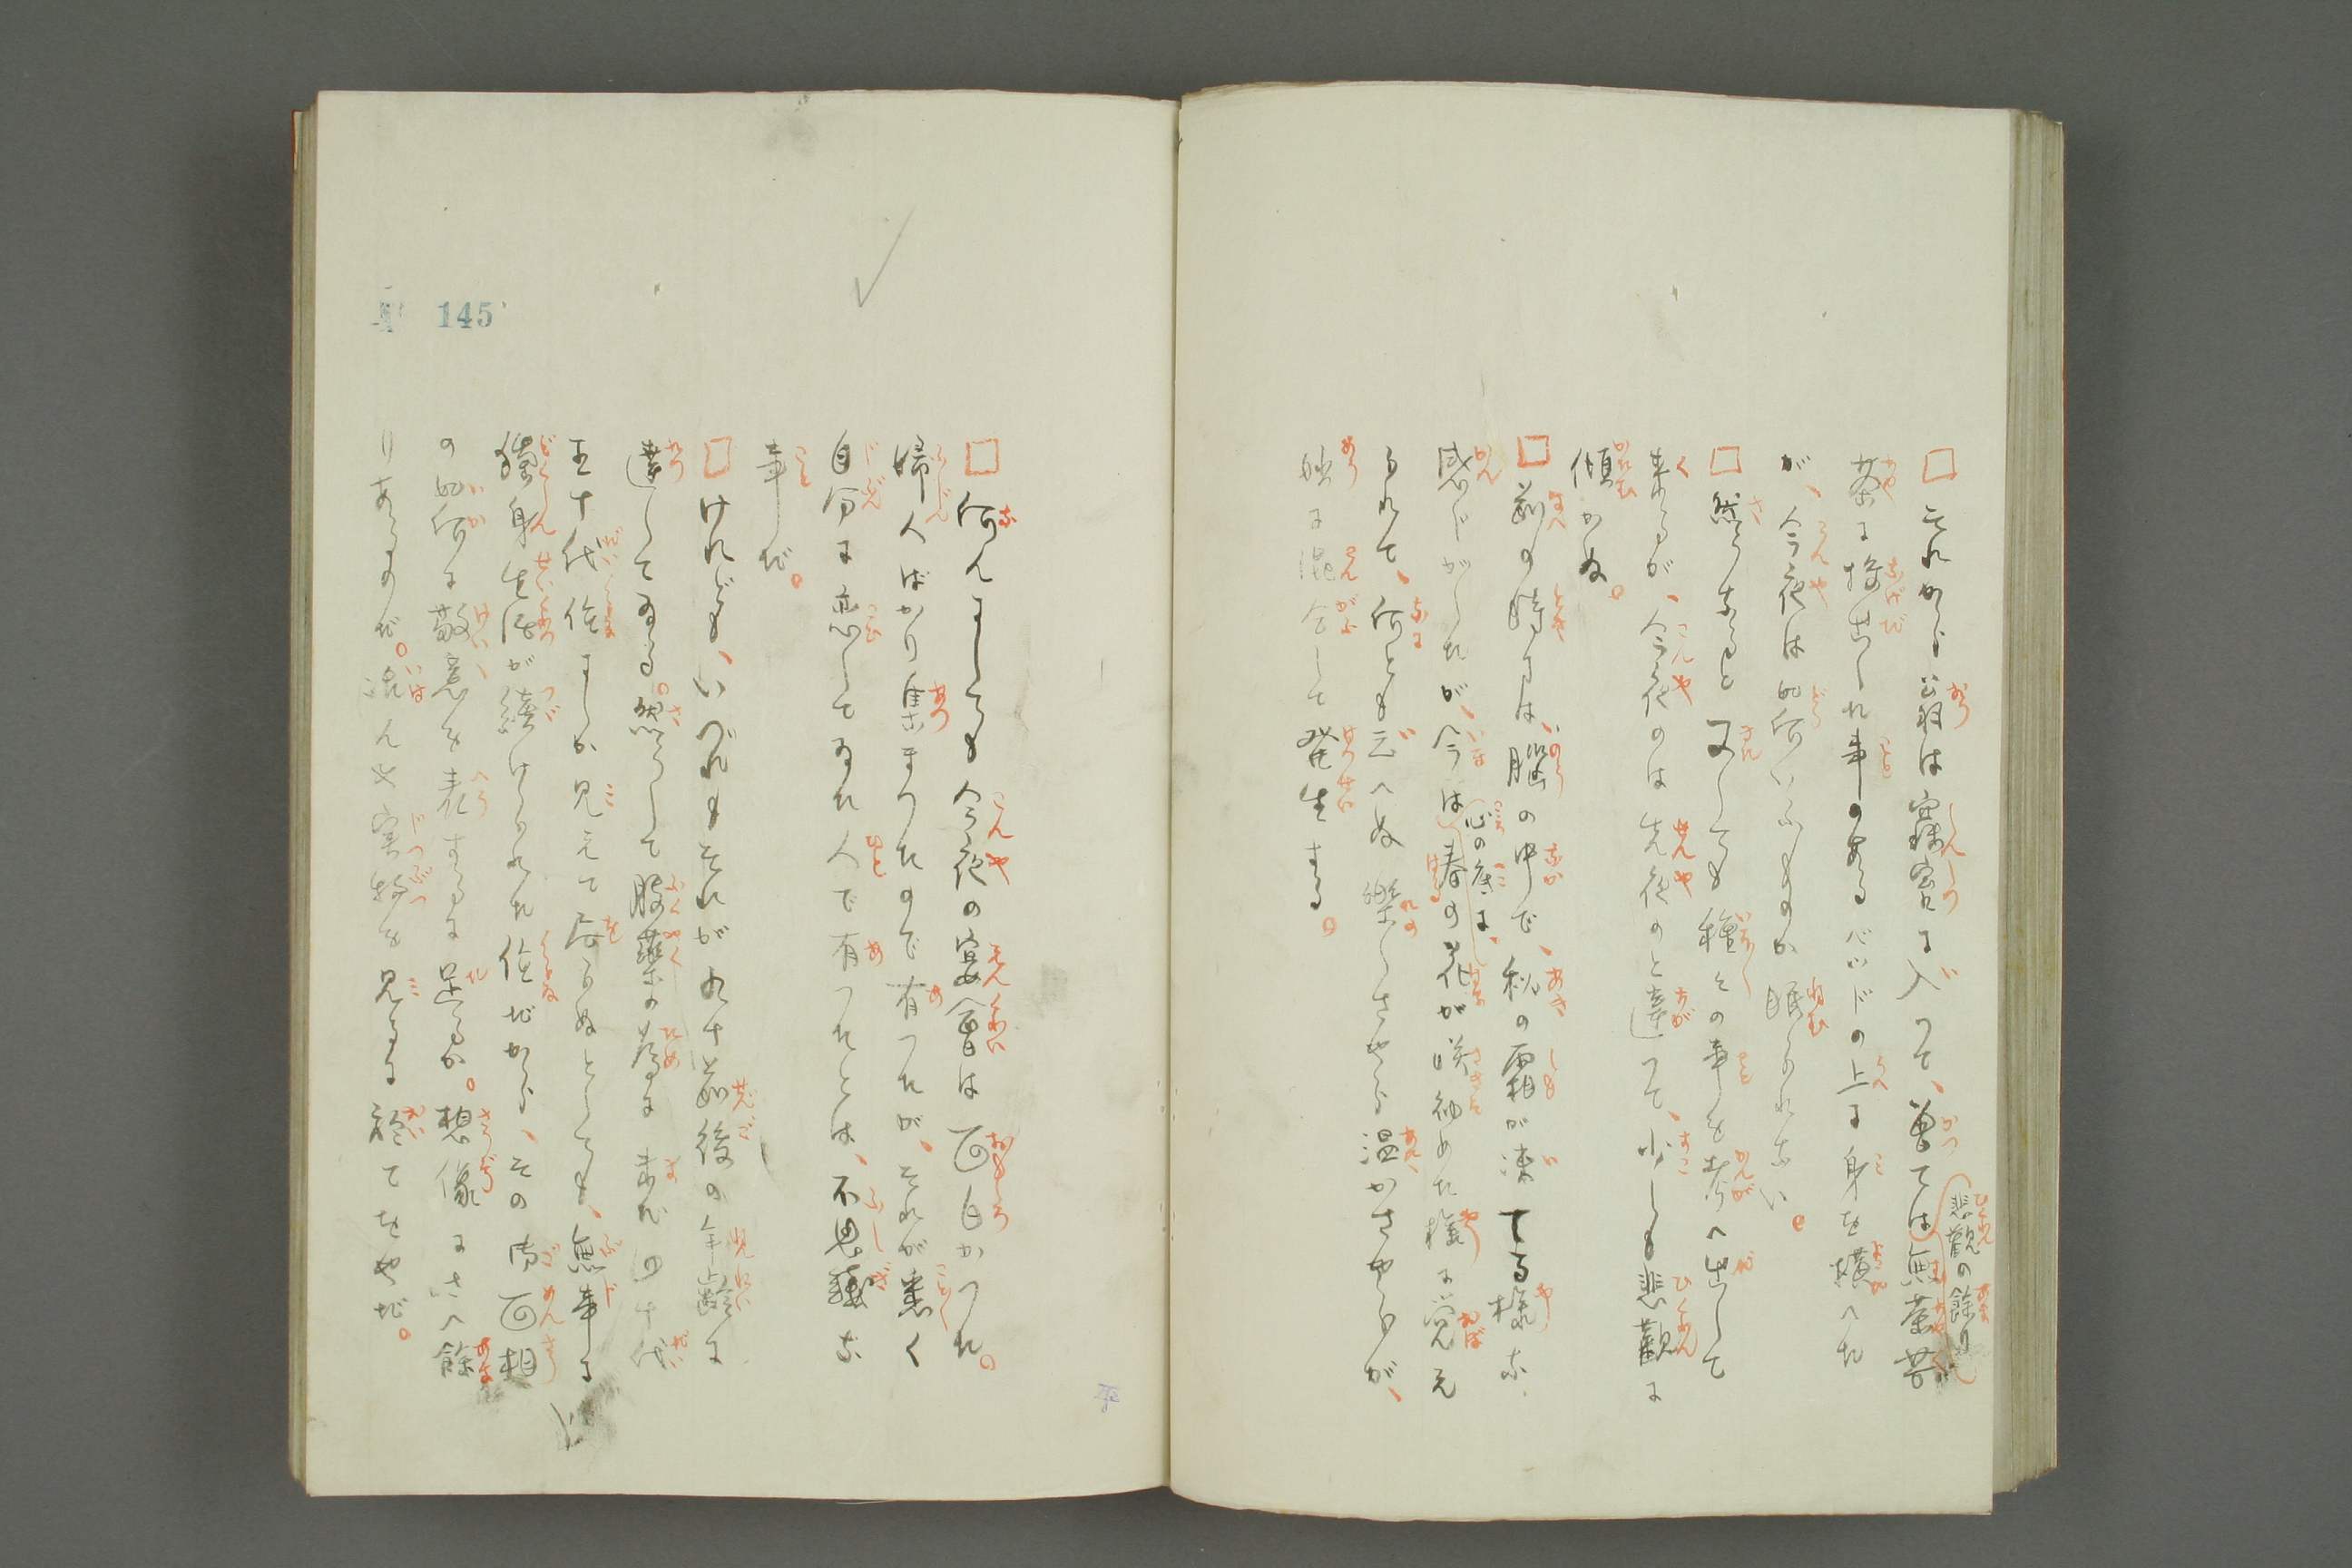 悲觀の餘り
□それから最は寢室に入つて、曽ては無茶苦
茶に投出した事のあるベッドの上に身を横へた
が、今夜は如何いふものか眠られない。
□然うなると又しても種々の事を考へ出して
来るが、今夜のは先夜のと違つて、少しも悲觀に
傾かぬ。
□前の時には、腦の中で、秋の霜が凍てる樣な
心の底に、
感じがしたが、今は春の花が咲初めた樣に覚え
られて、何とも云へぬ樂しさやら温かさやらが、
妙に混合して発生する。
□何んにしても今夜の宴會は面白かつた。
婦人ばかり集まつたので有つたが、それが悉く
自分に恋してゐた人で有つたとは、不思議な
事だ。
□けれども、いづれもそれが九十前後の年齢に
達してゐる。然うして服薬の為に未だ四十代
五十代位にしか見えて居らぬとしても、無事に
獨身生活が續けられた位だから、その御面相
の如何に敬意を表するに足るか。想像にさへ餘
りあるのだ。況んや実物を見るに於てをやだ。
145